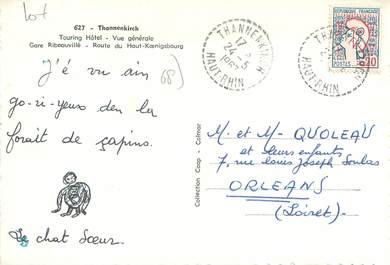 lot
627 - Thannenkirch
Touring Hôtel - Vue générale
Gare Ribeauvillé - Route du Haut-Kœnigsbourg
J'é vu ain
68
go-ri-yeus den la
forait de sapins.
Le chat Sœur.
Collection Coop - Colmar
THANNENKIRCH
17
24-5
HAUT-RHIN
THANNENKIRCH
HAUT-RHIN
0,20
M. et M- QUOLEAU
et leurs enfants
7, rue louis Joseph Soulas
ORLEANS
(Loiret).